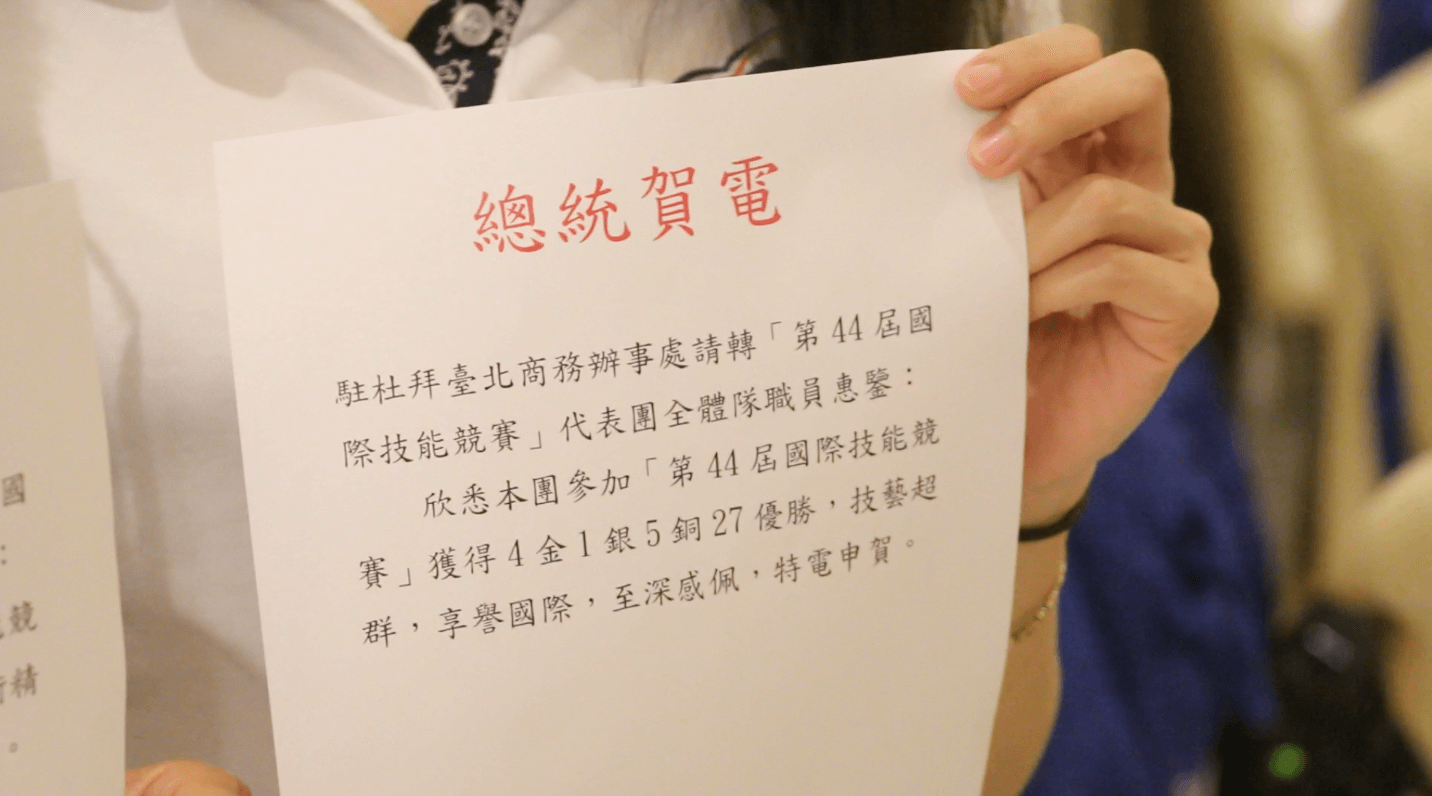 總統賀電
駐杜拜臺北商務辦事處請轉「第44屆國
際技能競賽」代表團全體隊職員惠鑒：
欣悉本團參加「第44屆國際技能競
賽」獲得4金1銀5銅27優勝，技藝超
群，享譽國際，至深感佩，特電申賀。
國
：
競
精
。